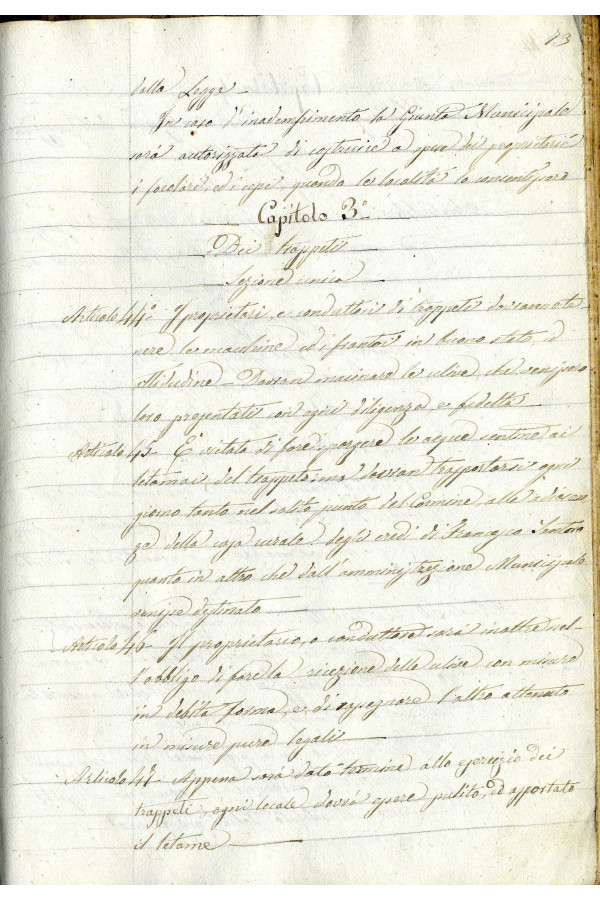 13
della Legge
In caso d'inadempimento la Giunta Municipale
sarà autorizzata di costruire a spese dei proprietarii
i focolari, ed i cupi, quando le località lo consentissero
Capitolo 3°
Dei trappeti
Sezione unica
Articolo 44° I proprietari, e conduttori di trappeti dovranno te
nere le macchine ed i frantoi in buono stato, ed
attitudine. Dovran macinare le ulive, che venissero
loro presentate con ogni diligenza e fedeltà
Articolo 45 È vietato di fare spargere le acque sentine ai
letamai del trappeto; ma dovran trapportarsi ogni
giorno tanto nel solito punto del Carmine, alle adiacen
ze della casa rurale degli eredi di Francesco Santoro
quanto in altro che dall'amministrazione Municipale
venisse destinato
Articolo 46 Il proprietario, o conduttore sarà inoltre nel-
l'obbligo di fare la ricezione delle ulive con misura
in debita forma, e di consegnare l'olio ottenuto
in misure pure legali
Articolo 47 Appena sarà dato termine allo esercizio dei
trappeti, ogni locale dovrà essere pulito, ed asportato
il letame